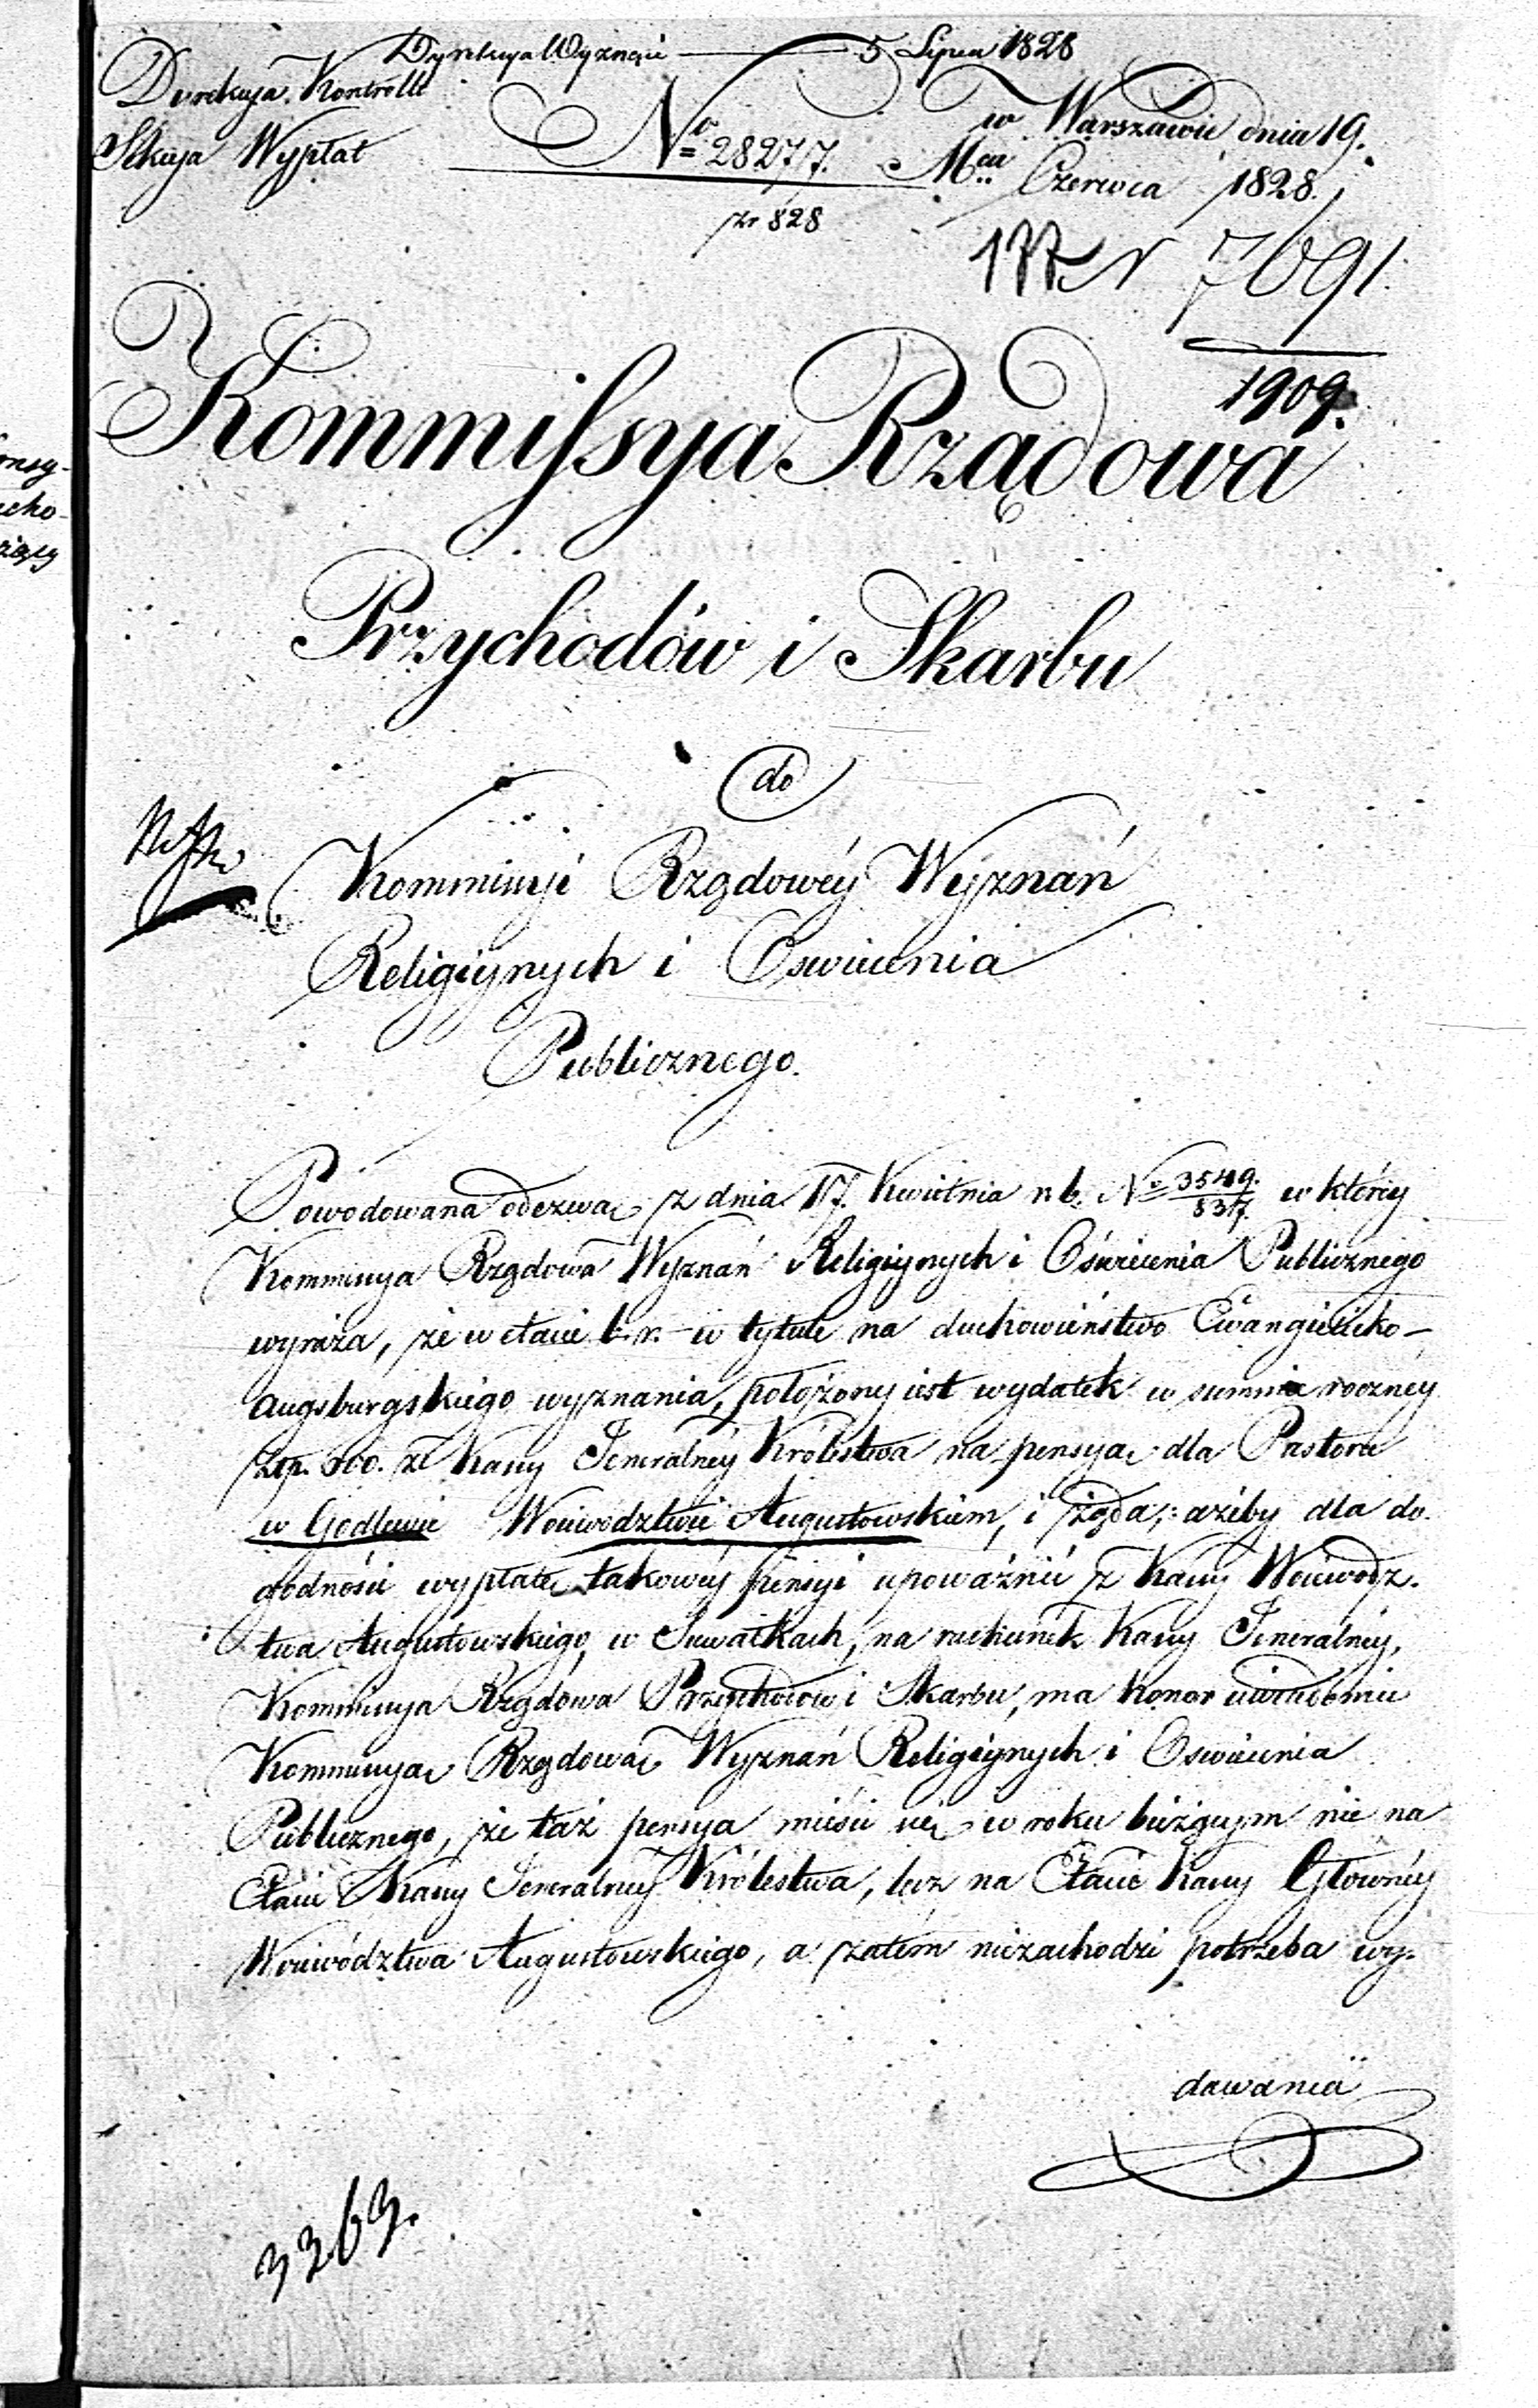 Dyrekcya Wyznań — 5 Lipca 1828
Dyrekcya Kontrolli
Sekcya Wypłat
No 28277.
w Warszawie dnia 19.
Mca Czerwca 1828.
7091
1909.
Kommissya Rządowa
Przychodów i Skarbu
do
Kommissyi Rządowéy Wyznań
Religiynych i Oswiecenia
Publicznego.
Powodowana odezwą z dnia 17. Kwietnia r. b. No 3549./837. w któréy
Kommissya Rządowa Wyznań Religiynych i Oświecenia Publicznego
wyraża, że w etacie b. r. w tytule na duchowieństwo Ewangielicko-
Augsburgskiego wyznania, położony iest wydatek w summie roczney
Złp. 500. z Kassy Jeneralnéy Królestwa na pensyą dla Pastora
w Godlewie Woiewództwie Augustowskiem, i żąda, ażeby dla do-
godności wypłatę takowéy pensyi upoważnić z Kassy Woiewodz-
twa Augustowskiego w Suwałkach, na rachunek Kassy Jeneralnéy,
Kommissya Rządowa Przychodów i Skarbu, ma honor uwiadomić
Kommissyą Rządową Wyznań Religiynych i Oswiecenia
Publicznego, że taż pensya mieści się w roku bieżącym nie na
Etacie Kassy Jeneralnéy Królestwa, lecz na Etacie Kassy Głównéy
Woiewództwa Augustowskiego, a zatém niezachodzi potrzeba wy-
dawania
3263.